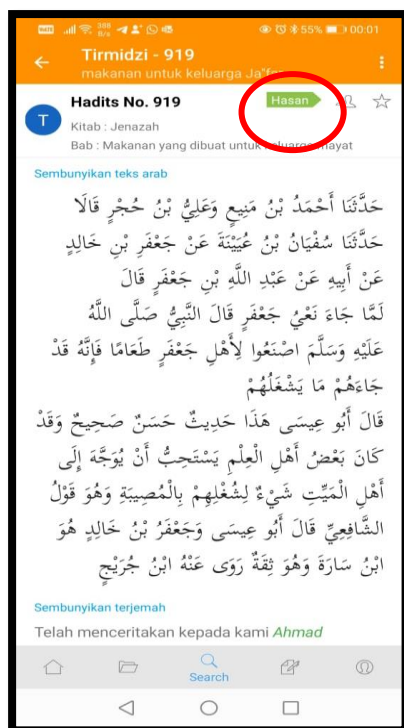 388 B/s 55% 00:01
Tirmidzi - 919
makanan untuk keluarga Ja"far
Hadits No. 919 Hasan
T
Kitab : Jenazah
Bab : Makanan yang dibuat untuk keluarga mayat
Sembunyikan teks arab
حَدَّثَنَا أَحْمَدُ بْنُ مَنِيعٍ وَعَلِيُّ بْنُ حُجْرٍ قَالَا
حَدَّثَنَا سُفْيَانُ بْنُ عُيَيْنَةَ عَنْ جَعْفَرِ بْنِ خَالِدٍ
عَنْ أَبِيهِ عَنْ عَبْدِ اللَّهِ بْنِ جَعْفَرٍ قَالَ
لَمَّا جَاءَ نَعْيُ جَعْفَرٍ قَالَ النَّبِيُّ صَلَّى اللَّهُ
عَلَيْهِ وَسَلَّمَ اصْنَعُوا لِأَهْلِ جَعْفَرٍ طَعَامًا فَإِنَّهُ قَدْ
جَاءَهُمْ مَا يَشْغَلُهُمْ
قَالَ أَبُو عِيسَى هَذَا حَدِيثٌ حَسَنٌ صَحِيحٌ وَقَدْ
كَانَ بَعْضُ أَهْلِ الْعِلْمِ يَسْتَحِبُّ أَنْ يُوَجَّهَ إِلَى
أَهْلِ الْمَيِّتِ شَيْءٌ لِشُغْلِهِمْ بِالْمُصِيبَةِ وَهُوَ قَوْلُ
الشَّافِعِيِّ قَالَ أَبُو عِيسَى وَجَعْفَرُ بْنُ خَالِدٍ هُوَ
ابْنُ سَارَةَ وَهُوَ ثِقَةٌ رَوَى عَنْهُ ابْنُ جُرَيْجٍ
Sembunyikan terjemah
Telah menceritakan kepada kami Ahmad
Search